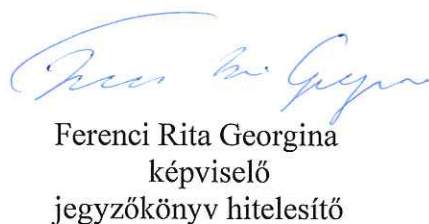 Ferenci Rita Georgina
képviselő
jegyzőkönyv hitelesítő